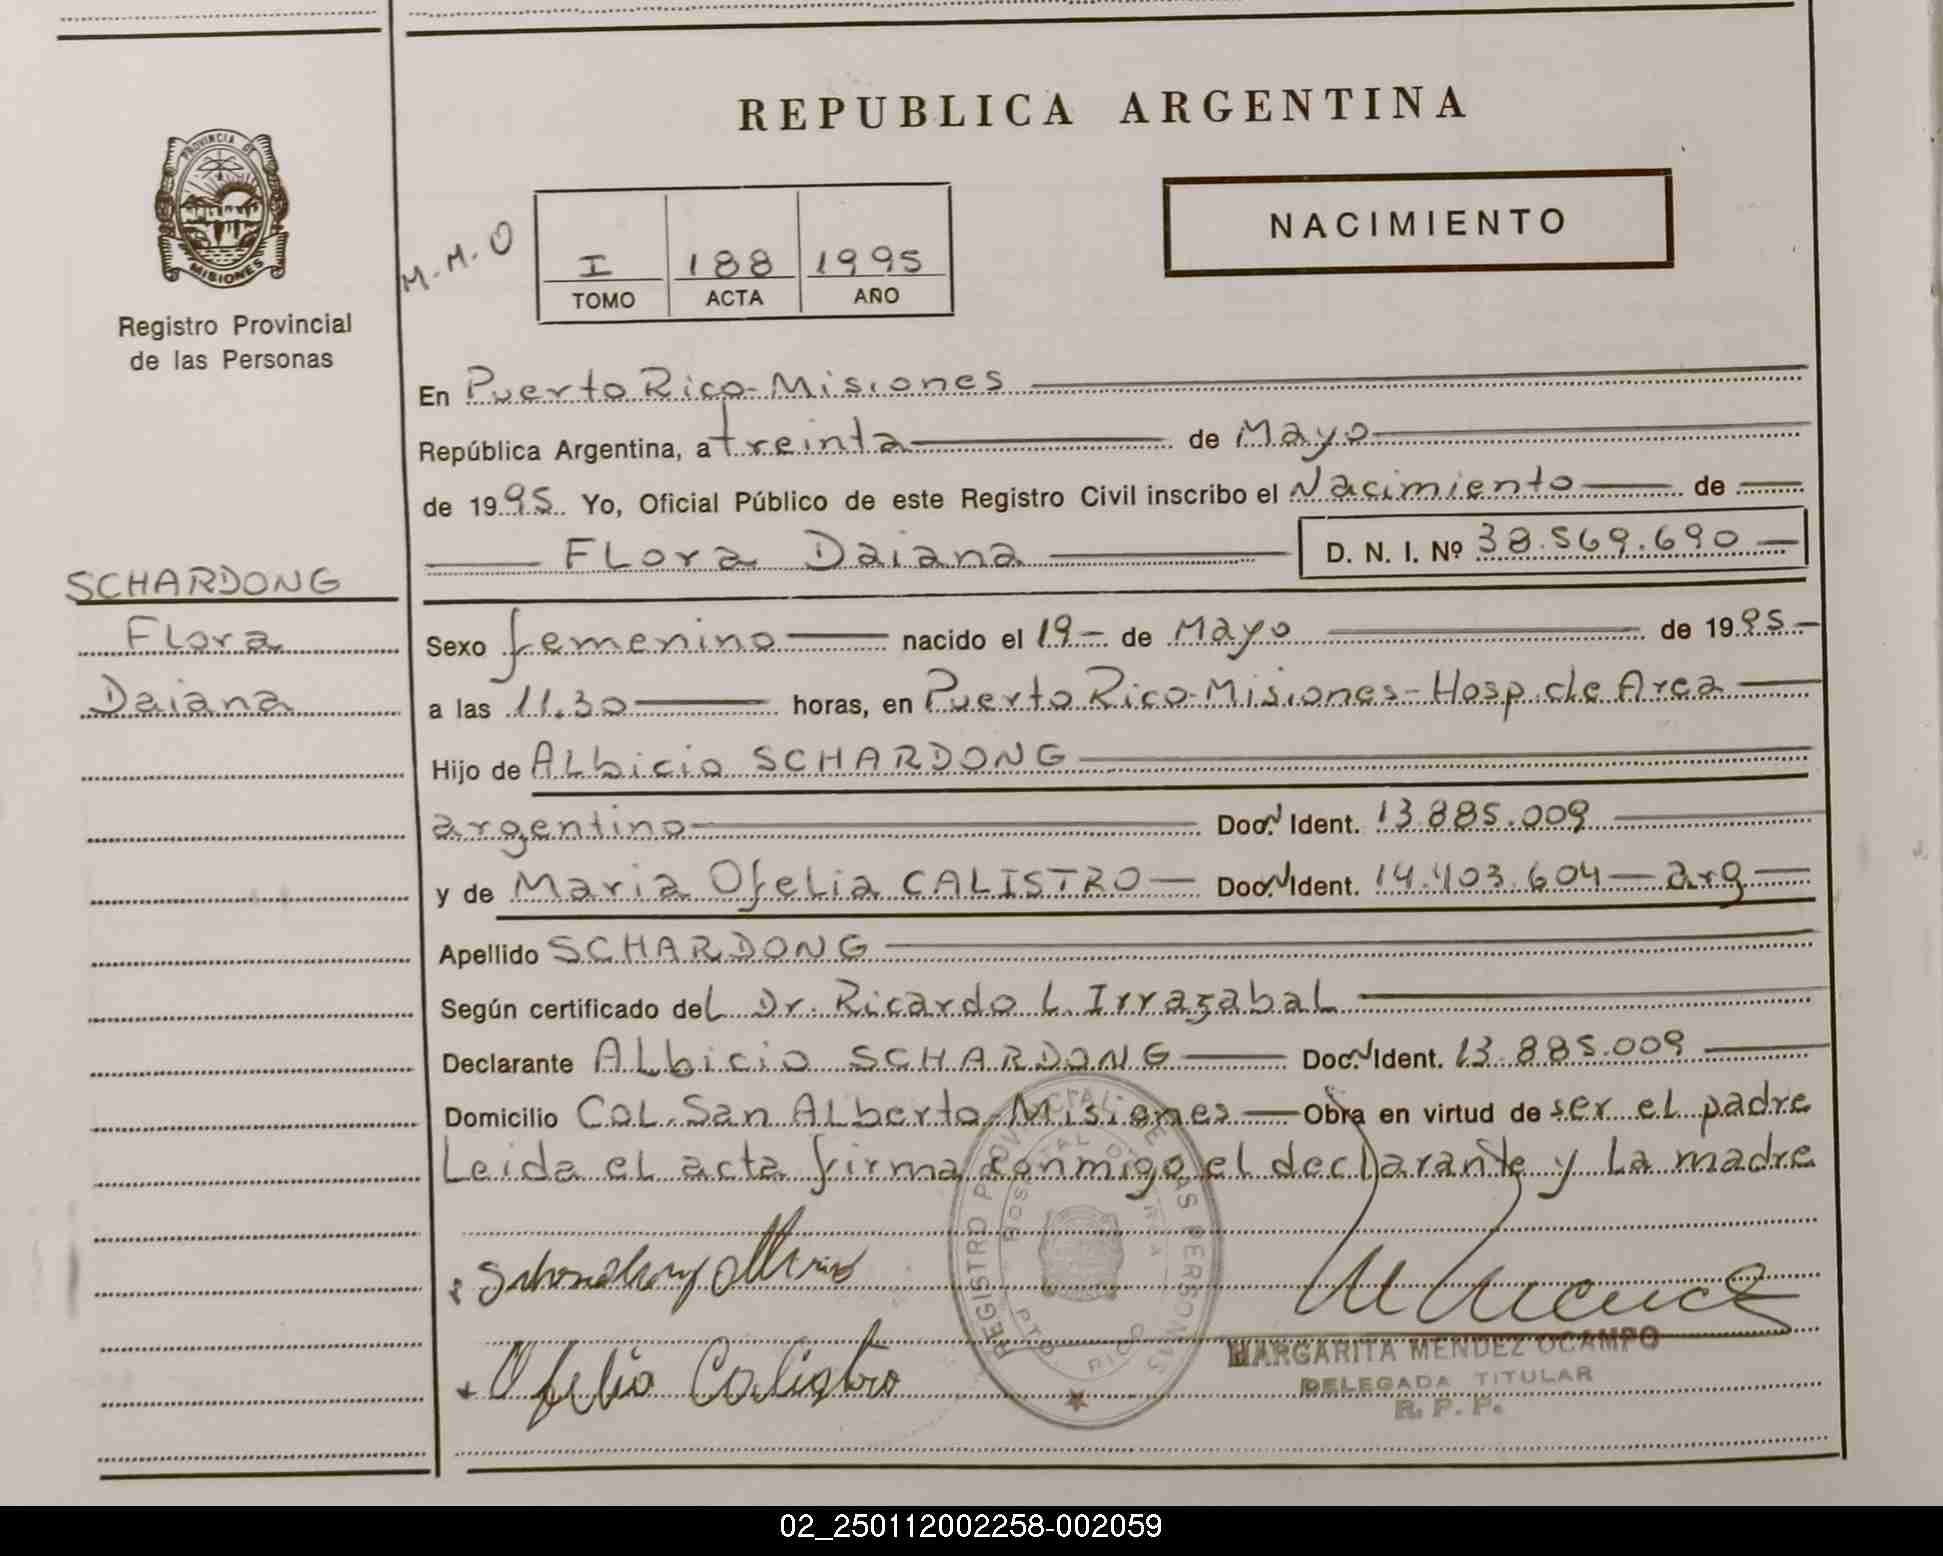 REPUBLICA ARGENTINA
PROVINCIA DE
MISIONES
Registro Provincial
de las Personas
M.M.O
I 188 1995
TOMO ACTA AÑO
NACIMIENTO
En Puerto Rico-Misiones
República Argentina, a treinta de Mayo
de 1995. Yo, Oficial Público de este Registro Civil inscribo el Nacimiento de
Flora Daiana D. N. I. Nº 38.569.690
SCHARDONG
Flora
Daiana
Sexo femenino nacido el 19 de Mayo de 1995
a las 11.30 horas, en Puerto Rico-Misiones-Hosp. de Area
Hijo de Albicio SCHARDONG
argentino Doc. Ident. 13.885.009
y de Maria Ofelia CALISTRO Doc. Ident. 14.403.604 arg
Apellido SCHARDONG
Según certificado del Dr. Ricardo L. Irrazabal
Declarante Albicio SCHARDONG Doc. Ident. 13.885.009
Domicilio Col. San Alberto-Misiones Obra en virtud de ser el padre
Leida el acta firma conmigo el declarante y la madre
Ofelia Calistro
REGISTRO PROVINCIAL DE LAS PERSONAS
PTO RICO
MARGARITA MENDEZ OCAMPO
DELEGADA TITULAR
R. P. P.
02_250112002258-002059